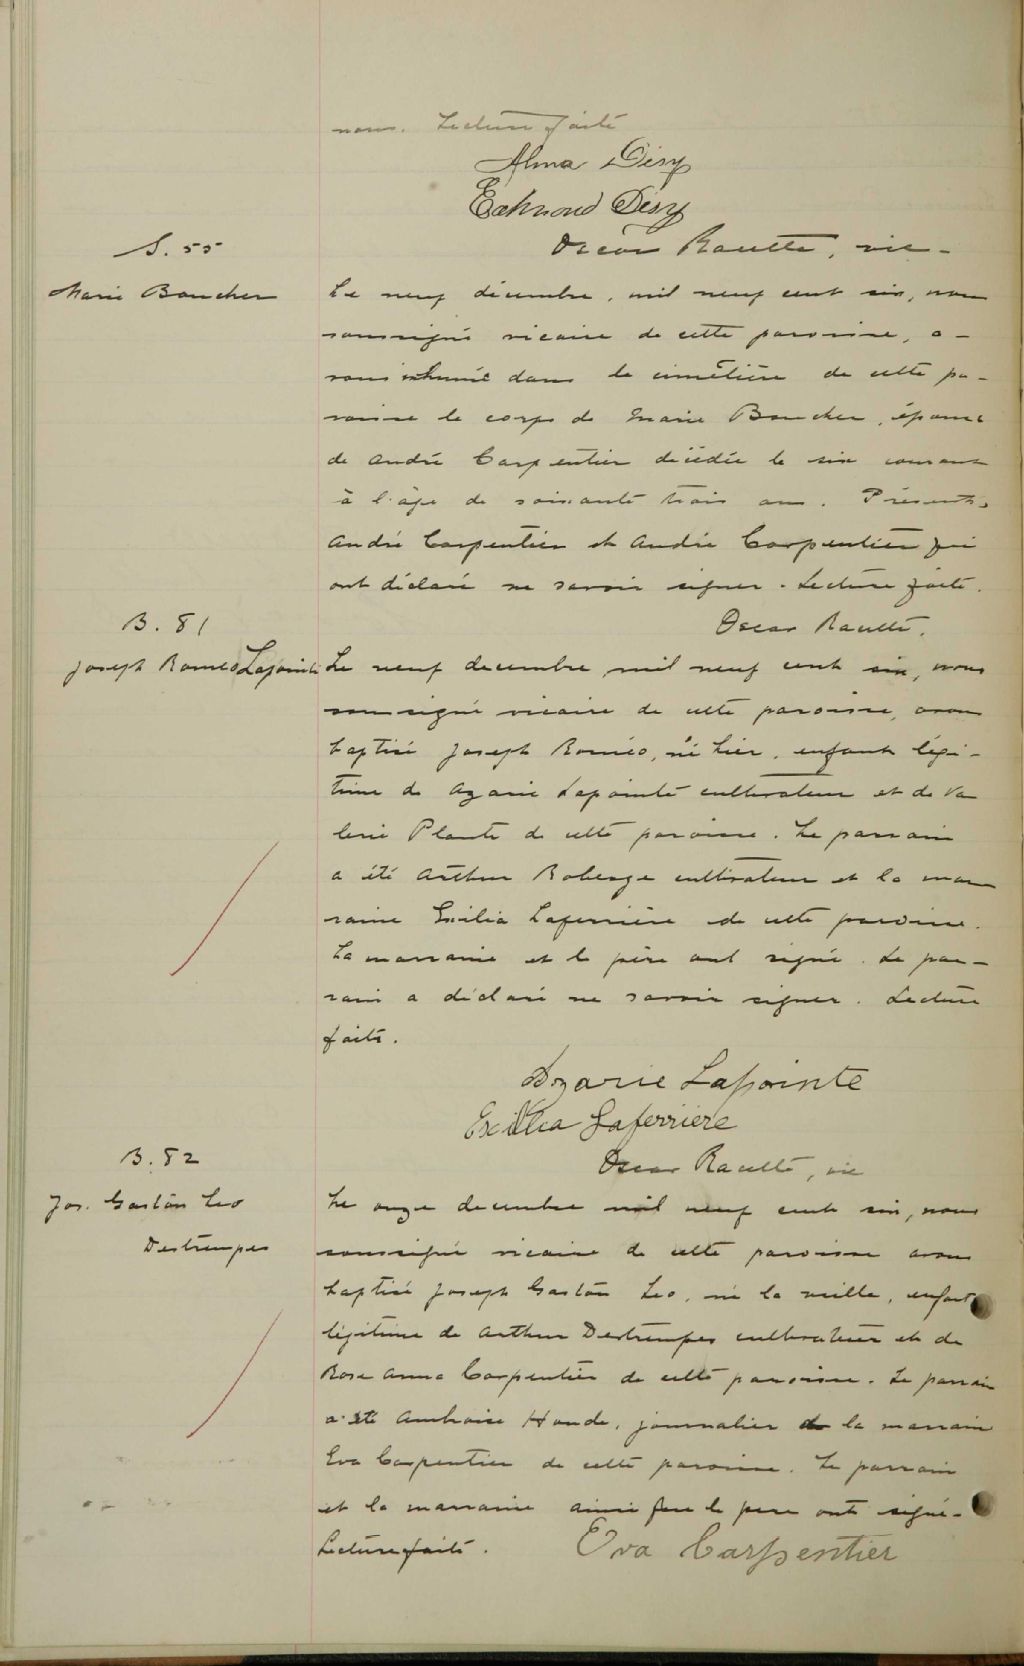 nous. Lecture faite
Alma Désy
Edmond Désy
Oscar Racette, vic-
S. 55
Marie Boucher
Le neuf décembre, mil neuf cent six, nous
soussigné vicaire de cette paroisse, a-
vons inhumé dans le cimetière de cette pa-
roisse le corps de Marie Boucher, épouse
de André Carpentier décédée le six courant
à l'âge de soixante trois ans. Présents,
André Carpentier et André Carpentier qui
ont déclaré ne savoir signer. Lecture faite.
Oscar Racette.
B. 81
Joseph Romeo Lapointe
Le neuf decembre mil neuf cent six, nous
soussigné vicaire de cette paroisse, avons
baptisé Joseph Roméo, né hier, enfant légi-
time de Azarie Lapointe cultivateur et de Va
lerie Plante de cette paroisse. Le parrain
a été Arthur Roberge cultivateur et la mar
raine Exilia Laferrière de cette paroisse.
La marraine et le père ont signé. Le par-
rain a déclaré ne savoir signer. Lecture
faite.
Azarie Lapointe
Exillia Laferriere
Oscar Racette, vic
B. 82
Jos. Gaston Leo
Destrempes
Le onze decembre mil neuf cent six, nous
soussigné vicaire de cette paroisse avons
baptisé Joseph Gaston Leo, né la veille, enfant
légitime de Arthur Destrempes cultivateur et de
Rose Anna Carpentier de cette paroisse. Le parrain
a été Ambroise Houde, journalier la marraine
Eva Carpentier de cette paroisse. Le parrain
et la marraine ainsi que le pere ont signé-
Lecture faite.
Eva Carpentier